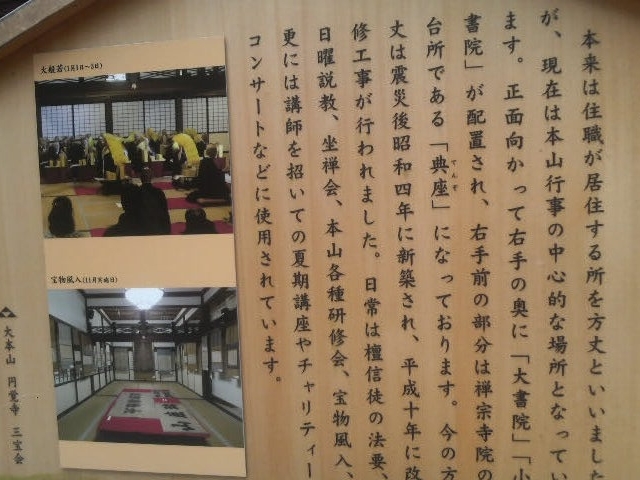 本来は住職が居住する所を方丈といいました
が、現在は本山行事の中心的な場所となってい
ます。正面向かって右手の奥に「大書院」「小
書院」が配置され、右手前の部分は禅宗寺院の
台所である「典座」になっております。今の方
てんぞ
丈は震災後昭和四年に新築され、平成十年に改
修工事が行われました。日常は檀信徒の法要、
日曜説教、坐禅会、本山各種研修会、宝物風入、
更には講師を招いての夏期講座やチャリティー
コンサートなどに使用されています。
大般若(1月1日〜3日)
宝物風入(11月実施日)
大本山 円覚寺 三宝会